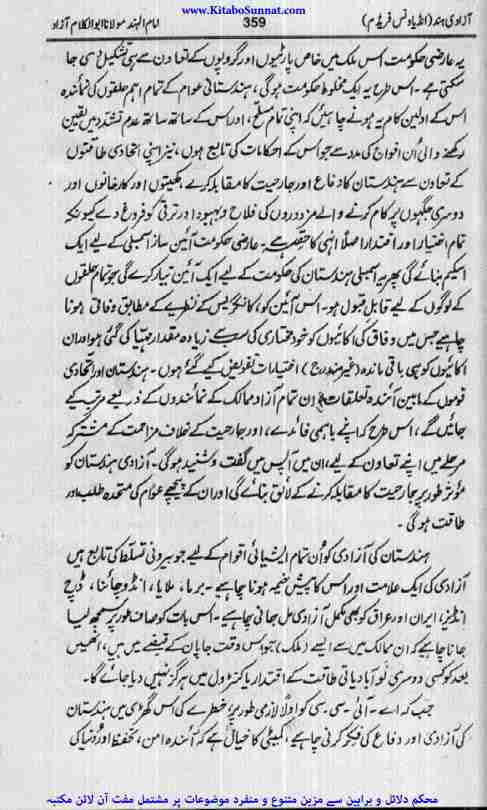 www.KitaboSunnat.com
آزادی ہند (انڈیا ونس فریڈم) 359 امام الہند مولانا ابوالکلام آزاد
یہ عارضی حکومت اس ملک میں خاص پارٹیوں اور گروپوں کے تعاون سے ہی تشکیل دی جا
سکتی ہے۔ اس طرح یہ ایک مخلوط حکومت ہوگی، ہندستانی عوام کے تمام اہم حلقوں کی نمائندہ
اس کے اولین کام یہ ہونے چاہئیں کہ اپنی تمام مسلح، اور اس کے ساتھ ساتھ عدم تشدد میں یقین
رکھنے والی اُن افواج کی مدد سے جو اس کے احکامات کی تابع ہوں، نیز اپنی اتحادی طاقتوں
کے تعاون سے ہندستان کا دفاع اور جارحیت کا مقابلہ کرے، کھیتوں اور کارخانوں اور
دوسری جگہوں پر کام کرنے والے مزدوروں کی فلاح و بہبود اور ترقی کو فروغ دے کیونکہ
تمام اختیار اور اقتدار اصلاً انہی کا حصہ ہے۔ عارضی حکومت آئین ساز اسمبلی کے لیے ایک
اسکیم بنائے گی پھر یہ اسمبلی ہندستان کی حکومت کے لیے ایک آئین تیار کرے گی جو تمام حلقوں
کے لوگوں کے لیے قابل قبول ہو۔ اس آئین کو، کانگریس کے نظریے کے مطابق وفاقی ہونا
چاہیے جس میں وفاق کی اکائیوں کو خود مختاری کی سب سے زیادہ مقدار مہیا کی گئی ہو اور ان
اکائیوں کو ہی باقی ماندہ (غیر مندرج) اختیارات تفویض کیے گئے ہوں۔ ہندستان اور اتحادی
قوموں کے مابین آئندہ تعلقات ان تمام آزاد ممالک کے نمائندوں کے ذریعے مرتب کیے
جائیں گے، اس طرح کہ اپنے باہمی فائدے، اور جارحیت کے خلاف مزاحمت کے مشترکہ
مرحلے میں اپنے تعاون کے لیے، ان میں آپس میں گفت و شنید ہوگی۔ آزادی ہندستان کو
مؤثر طور پر جارحیت کا مقابلہ کرنے کے لائق بنائے گی اور ان کے پیچھے عوام کی متحدہ طلب اور
طاقت ہوگی۔
ہندستان کی آزادی کو اُن تمام ایشیائی اقوام کے لیے جو بیرونی تسلط کی تابع ہیں
آزادی کی ایک علامت اور اس کا پیش خیمہ ہونا چاہیے۔ برما، ملایا، انڈو چائنا، ڈچ
انڈیز، ایران اور عراق کو بھی مکمل آزادی مل جانی چاہیے۔ اس بات کو صاف طور پر سمجھ لیا
جانا چاہیے کہ ان ممالک میں سے ایسے (ملک) جو اس وقت جاپان کے قبضے میں ہیں، انھیں
بعد کو کسی دوسری نوآبادیاتی طاقت کے اقتدار یا کنٹرول میں ہرگز نہیں دیا جائے گا۔
جب کہ اے۔ آئی۔ سی۔ سی کو اولاً لازمی طور پر خطرے کی اس گھڑی میں ہندستان
کی آزادی اور دفاع کی فکر کرنی چاہیے، کمیٹی کا خیال ہے کہ آئندہ امن، تحفظ اور دنیا کی
محکم دلائل و براہین سے مزین متنوع و منفرد موضوعات پر مشتمل مفت آن لائن مکتبہ